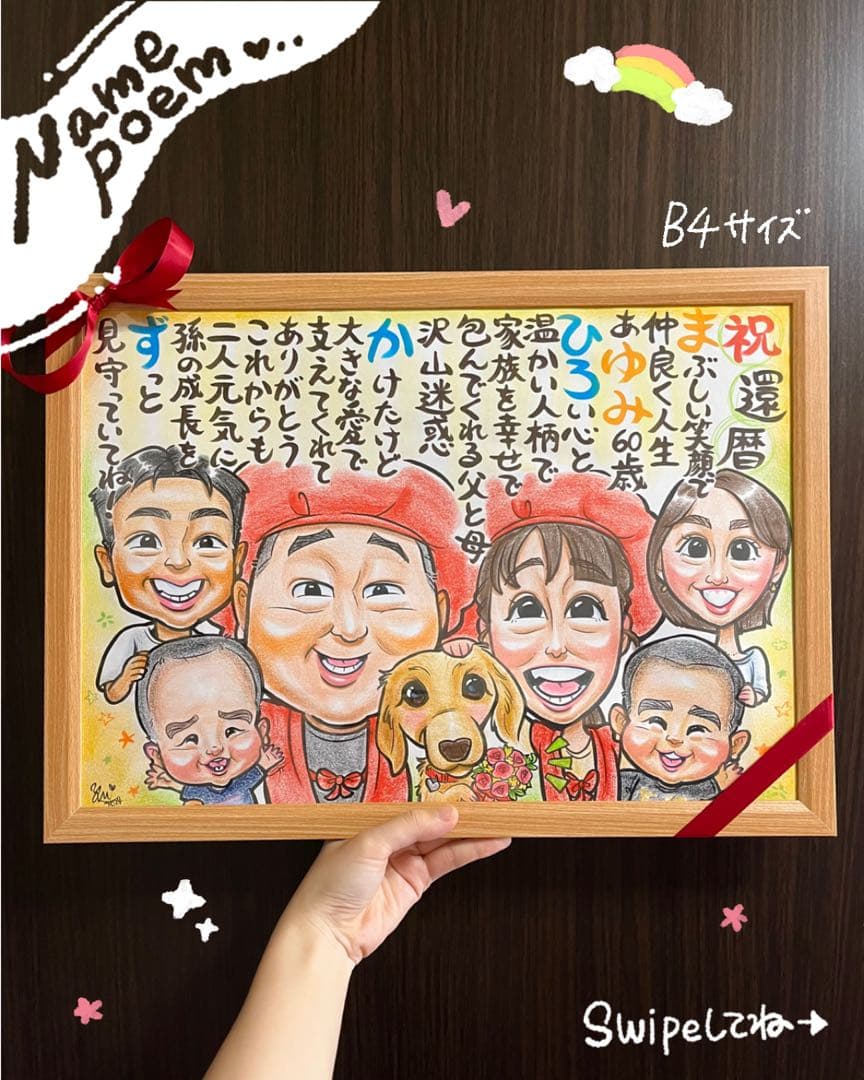 Name
poem
B4サイズ
祝還暦
まぶしい笑顔で
仲良く人生
あゆみ60歳
ひろい心と
温かい人柄で
家族を幸せで
包んでくれる父と母
沢山迷惑
かけたけど
大きな愛で
支えてくれて
ありがとう
これからも
二人元気に
孫の成長を
ずっと
見守っていてね!
Swipeしてね→